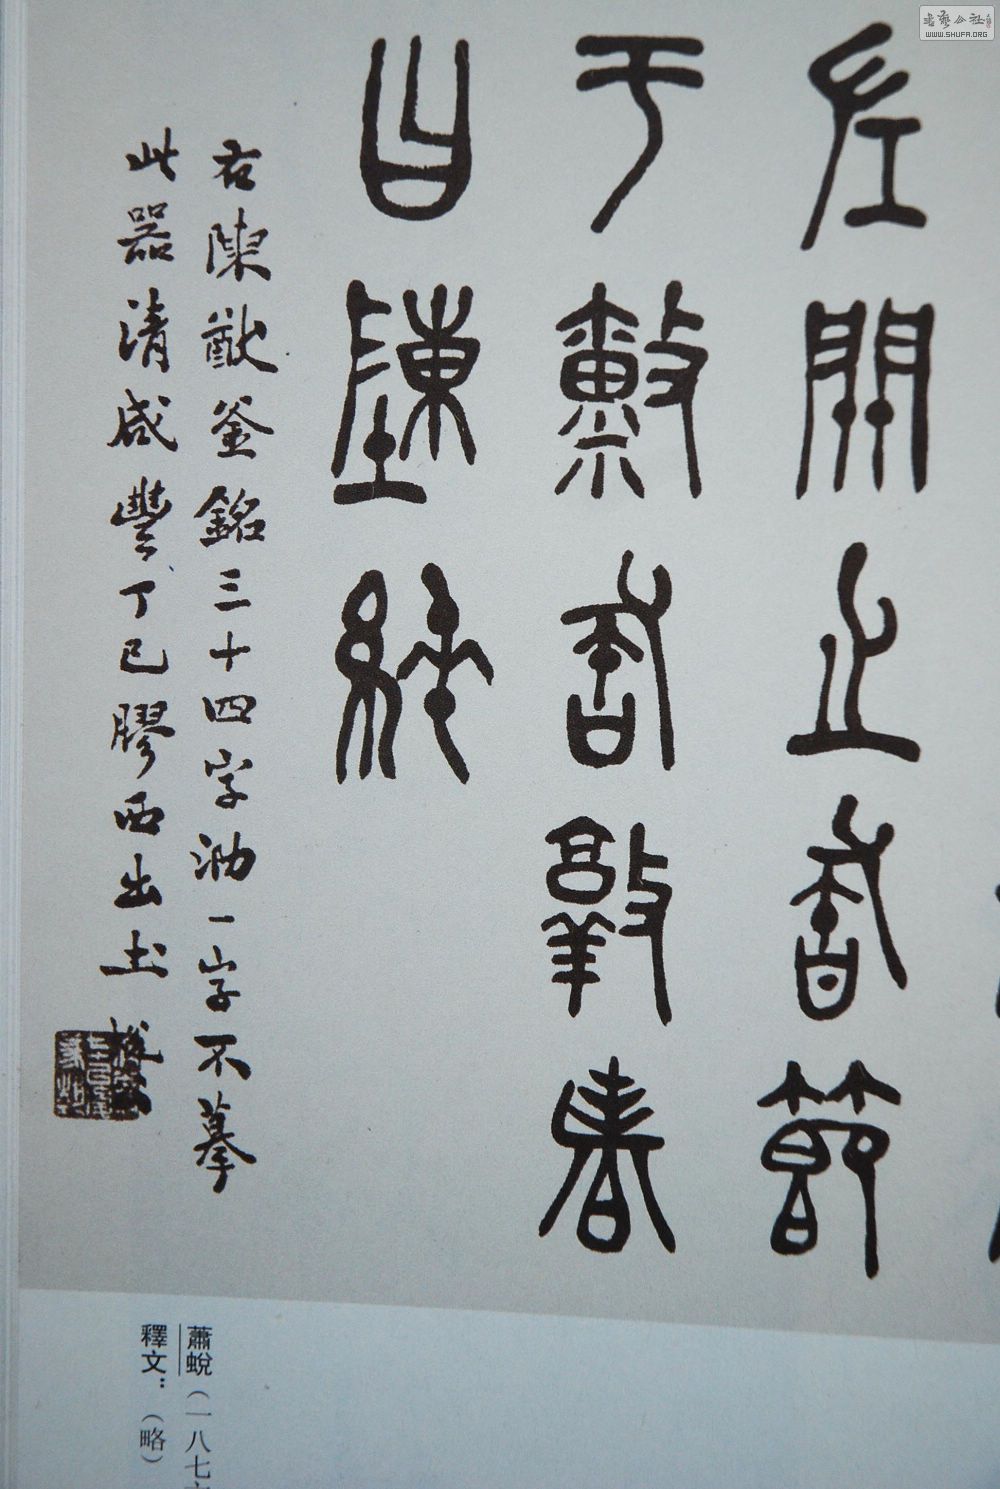 左關止釜節
于𢊾釜敦者
曰陳純
右陳猷釜銘三十四字泐一字不摹
此器清咸豐丁巳膠西出土 蛻
蕭蛻（一八七六
釋文：（略）
書藝公社
WWW.SHUFA.ORG